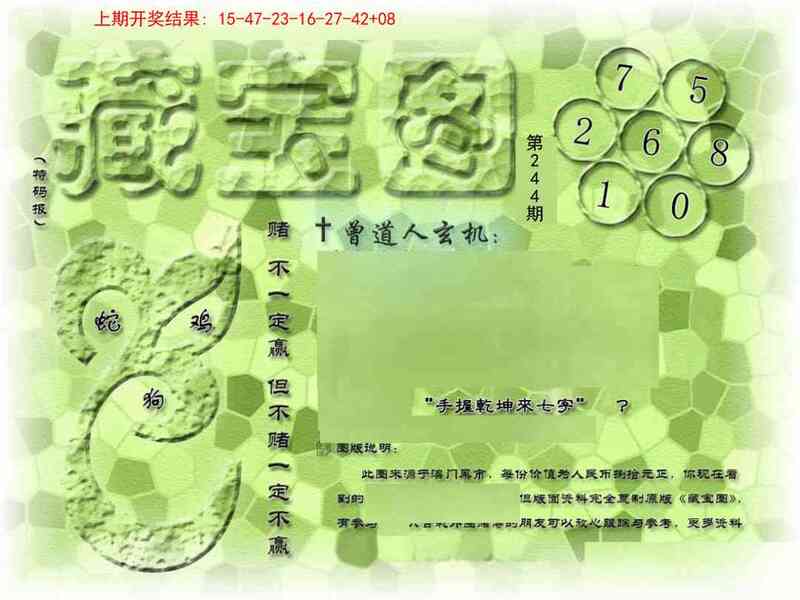 上期开奖结果：15-47-23-16-27-42+08
藏宝图
（特码报）
第244期
7 5
2 6 8
1 0
蛇 鸡
狗
赌不一定赢但不赌一定不赢
曾道人玄机：
“手握乾坤来七字” ？
图版说明：
此图来源于澳门黑市，每份价值为人民币捌拾元正，你现在看
到的 但版面资料完全复制原版《藏宝图》，
的朋友可以放心跟踪与参考，更多资料